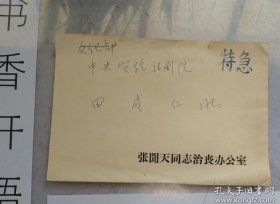 书香开语
特急
中央实验话剧院
田成仁 同志
张闻天同志治丧办公室
孔夫子旧书网